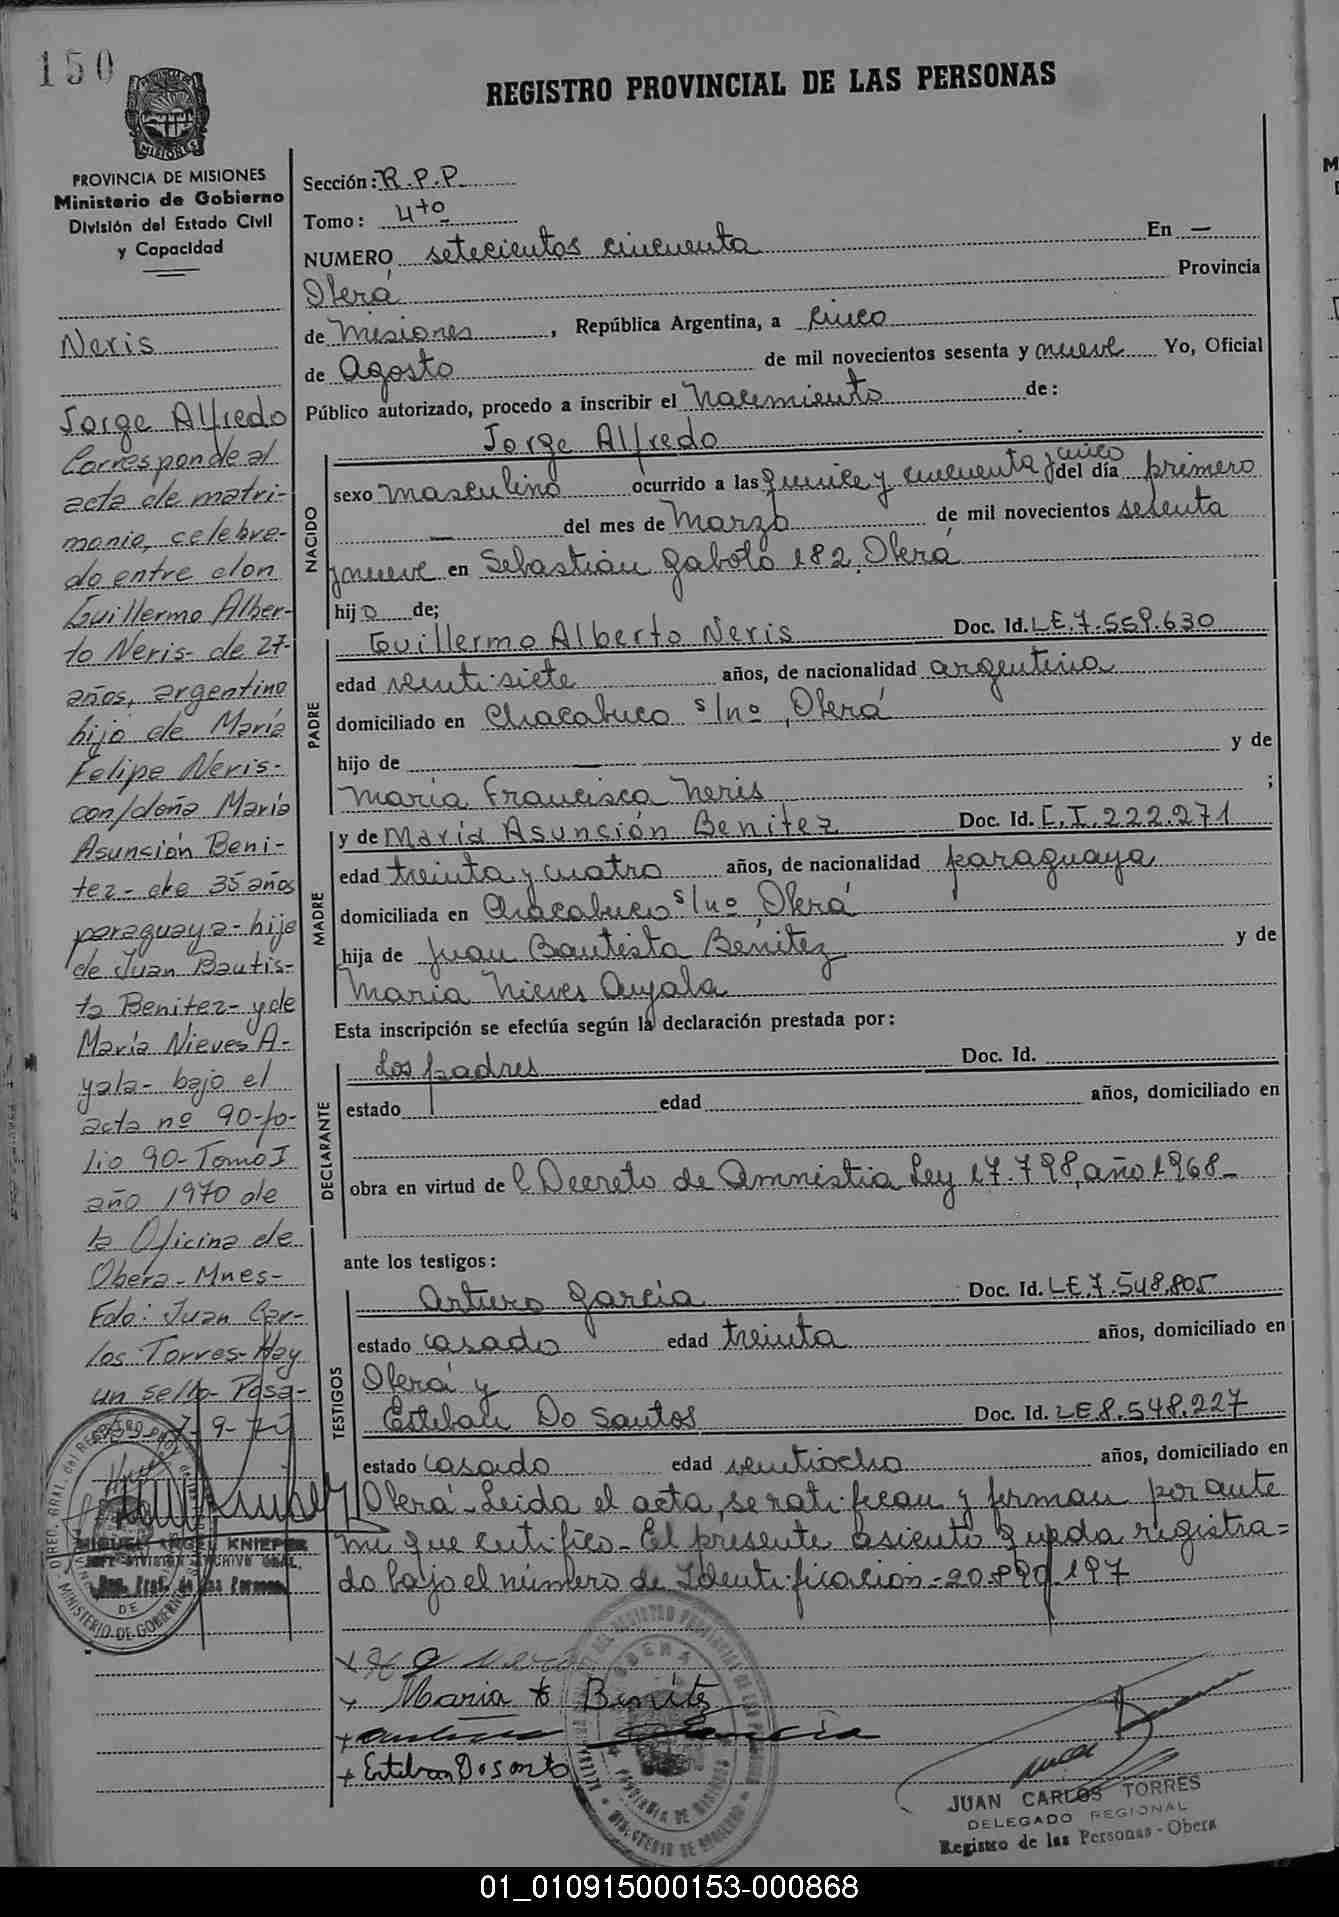 150
REGISTRO PROVINCIAL DE LAS PERSONAS
MISIONES
PROVINCIA DE MISIONES
Ministerio de Gobierno
División del Estado Civil
y Capacidad
Neris
Jorge Alfredo
Corresponde al
acta de matri-
monio, celebra-
do entre don
Guillermo Alber-
to Neris- de 27-
años, argentino
hijo de María
Felipe Neris-
con/doña María
Asunción Beni-
tez- de 35 años
paraguaya- hija
de Juan Bautis-
ta Benitez- y de
María Nieves A-
yala- bajo el
acta nº 90-fo-
lio 90- Tomo I
año 1970 de
la Oficina de
Obera- Mnes-
Fdo: Juan Car-
los Torres- Hay
un sello- Posa-
MIGUEL ANGEL KNIEPER
Sección: R.P.P.
Tomo: 4to
NUMERO setecientos cincuenta En —
Oberá Provincia
de Misiones, República Argentina, a cinco
de Agosto de mil novecientos sesenta y nueve Yo, Oficial
Público autorizado, procedo a inscribir el Nacimiento de:
Jorge Alfredo
NACIDO
sexo masculino ocurrido a las quince y cincuenta y cinco del día primero
— del mes de Marzo de mil novecientos sesenta
y nueve en Sebastián Gaboto 182, Oberá
hijo de;
PADRE
Guillermo Alberto Neris Doc. Id. LE.7.559.630
edad veintisiete años, de nacionalidad argentina
domiciliado en Chacabuco s/nº, Oberá
hijo de — y de
María Francisca Neris ;
MADRE
y de María Asunción Benitez Doc. Id. C.I.222.271
edad treinta y cuatro años, de nacionalidad paraguaya
domiciliada en Chacabuco s/nº, Oberá
hija de Juan Bautista Benítez y de
María Nieves Ayala
Esta inscripción se efectúa según la declaración prestada por:
DECLARANTE
Los padres Doc. Id.
estado edad años, domiciliado en
obra en virtud de l Decreto de Amnistia Ley 17.798, año 1968-
ante los testigos:
TESTIGOS
Arturo García Doc. Id. LE.7.548.805
estado casado edad treinta años, domiciliado en
Oberá y
Esteban Do Santos Doc. Id. LE 8.548.227
estado casado edad veintiocho años, domiciliado en
Oberá- Leida el acta, se ratifican y firman por ante
mi que certifico- El presente asiento queda registra=
do bajo el número de Identificacion- 20.890.197
Maria Benitz
Arturo Garcia
Esteban Dosanto
JUAN CARLOS TORRES
DELEGADO REGIONAL
Registro de las Personas - Obera
01_010915000153-000868